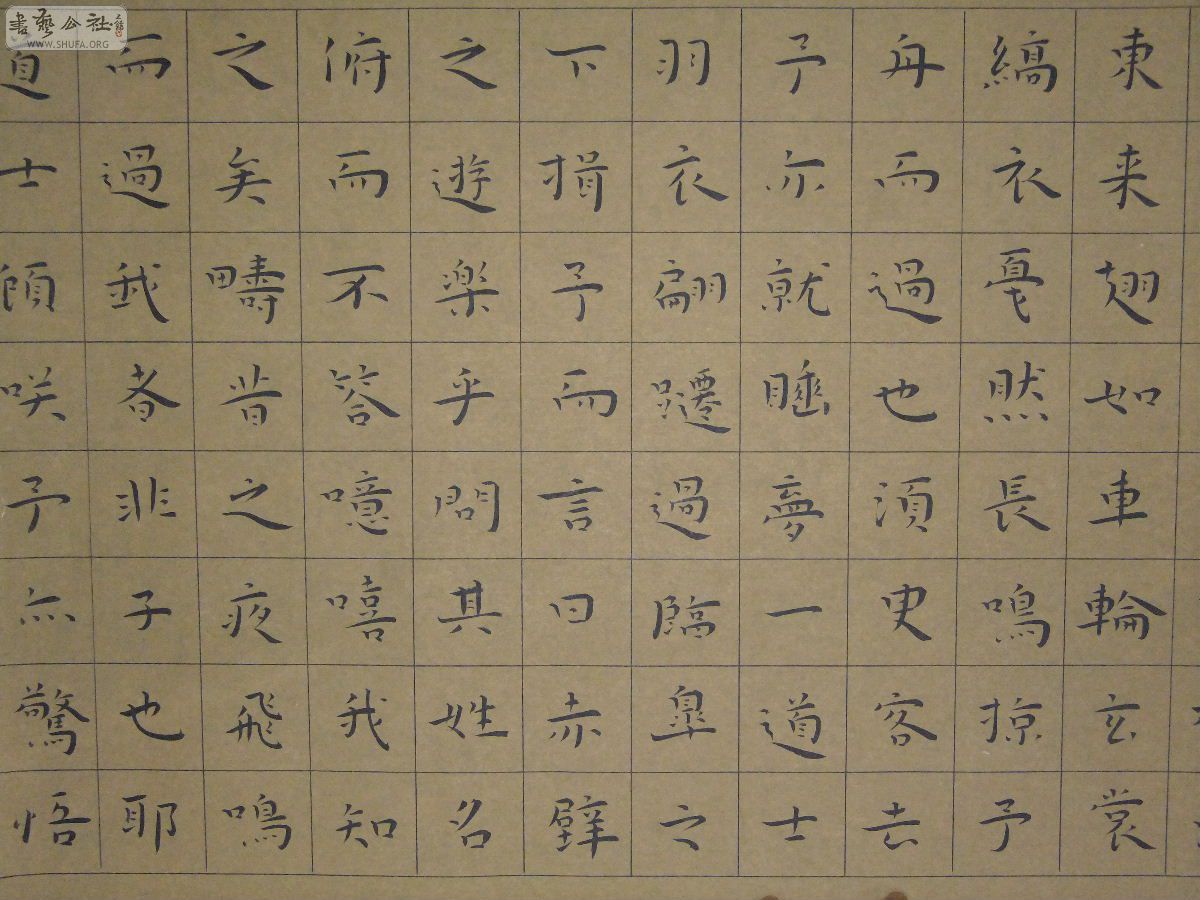 東来翅如車輪玄裳
縞衣戛然長鳴掠予
舟而過也須臾客去
予亦就睡夢一道士
羽衣翩躚過臨皐之
下揖予而言曰赤壁
之遊楽乎問其姓名
俯而不答噫嘻我知
之矣疇昔之夜飛鳴
而過我者非子也耶
道士顧咲予亦驚悟
書藝公社
WWW.SHUFA.ORG